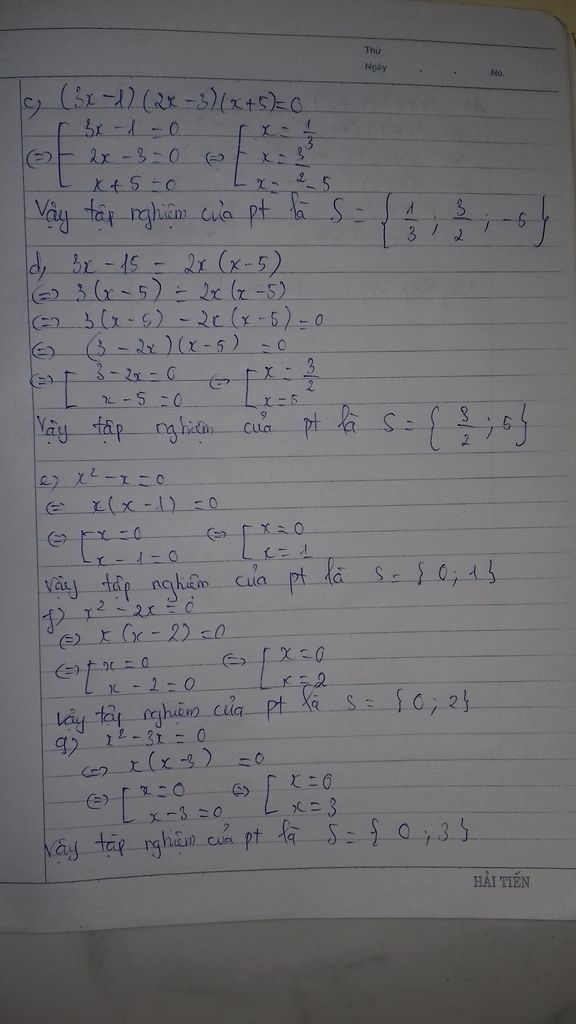 Thứ
Ngày . . No.
c) (3x-1)(2x-3)(x+5)=0
⇔ [ 3x-1=0 ⇔ [ x = 1/3
2x-3=0 x = 3/2
x+5=0 x = -5
Vậy tập nghiệm của pt là S = { 1/3 ; 3/2 ; -5 }
d) 3x-15 = 2x(x-5)
⇔ 3(x-5) = 2x(x-5)
⇔ 3(x-5) - 2x(x-5) = 0
⇔ (3-2x)(x-5) = 0
⇔ [ 3-2x=0 ⇔ [ x = 3/2
x-5=0 x=5
Vậy tập nghiệm của pt là S = { 3/2 ; 5 }
e) x² - x = 0
⇔ x(x-1) = 0
⇔ [ x=0 ⇔ [ x=0
x-1=0 x=1
Vậy tập nghiệm của pt là S = { 0 ; 1 }
f) x² - 2x = 0
⇔ x(x-2) = 0
⇔ [ x=0 ⇔ [ x=0
x-2=0 x=2
Vậy tập nghiệm của pt là S = { 0 ; 2 }
g) x² - 3x = 0
⇔ x(x-3) = 0
⇔ [ x=0 ⇔ [ x=0
x-3=0 x=3
Vậy tập nghiệm của pt là S = { 0 ; 3 }
HẢI TIẾN